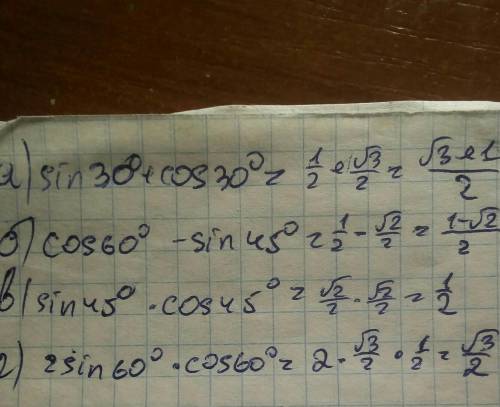 а) sin30°+cos30° = 1/2 + √3/2 = (√3+1)/2
б) cos60° - sin45° = 1/2 - √2/2 = (1-√2)/2
в) sin45° · cos45° = √2/2 · √2/2 = 1/2
г) 2sin60° · cos60° = 2 · √3/2 · 1/2 = √3/2